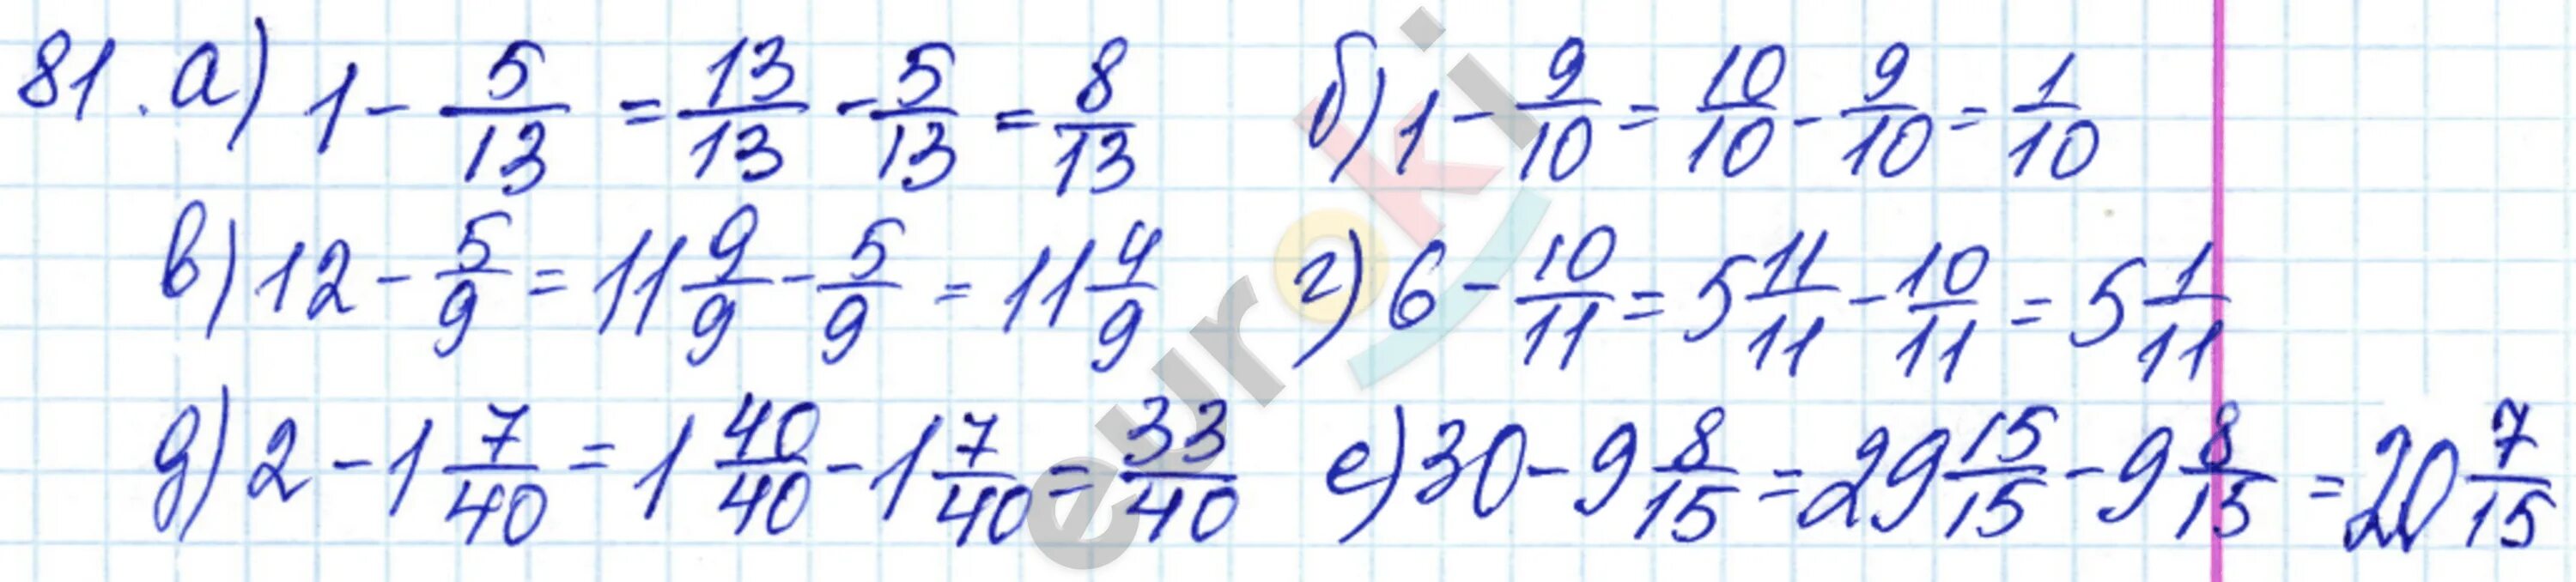 81. а) 1 - 5/13 = 13/13 - 5/13 = 8/13 б) 1 - 9/10 = 10/10 - 9/10 = 1/10
в) 12 - 5/9 = 11 9/9 - 5/9 = 11 4/9 г) 6 - 10/11 = 5 11/11 - 10/11 = 5 1/11
д) 2 - 1 7/40 = 1 40/40 - 1 7/40 = 33/40 е) 30 - 9 8/15 = 29 15/15 - 9 8/15 = 20 7/15
euroki